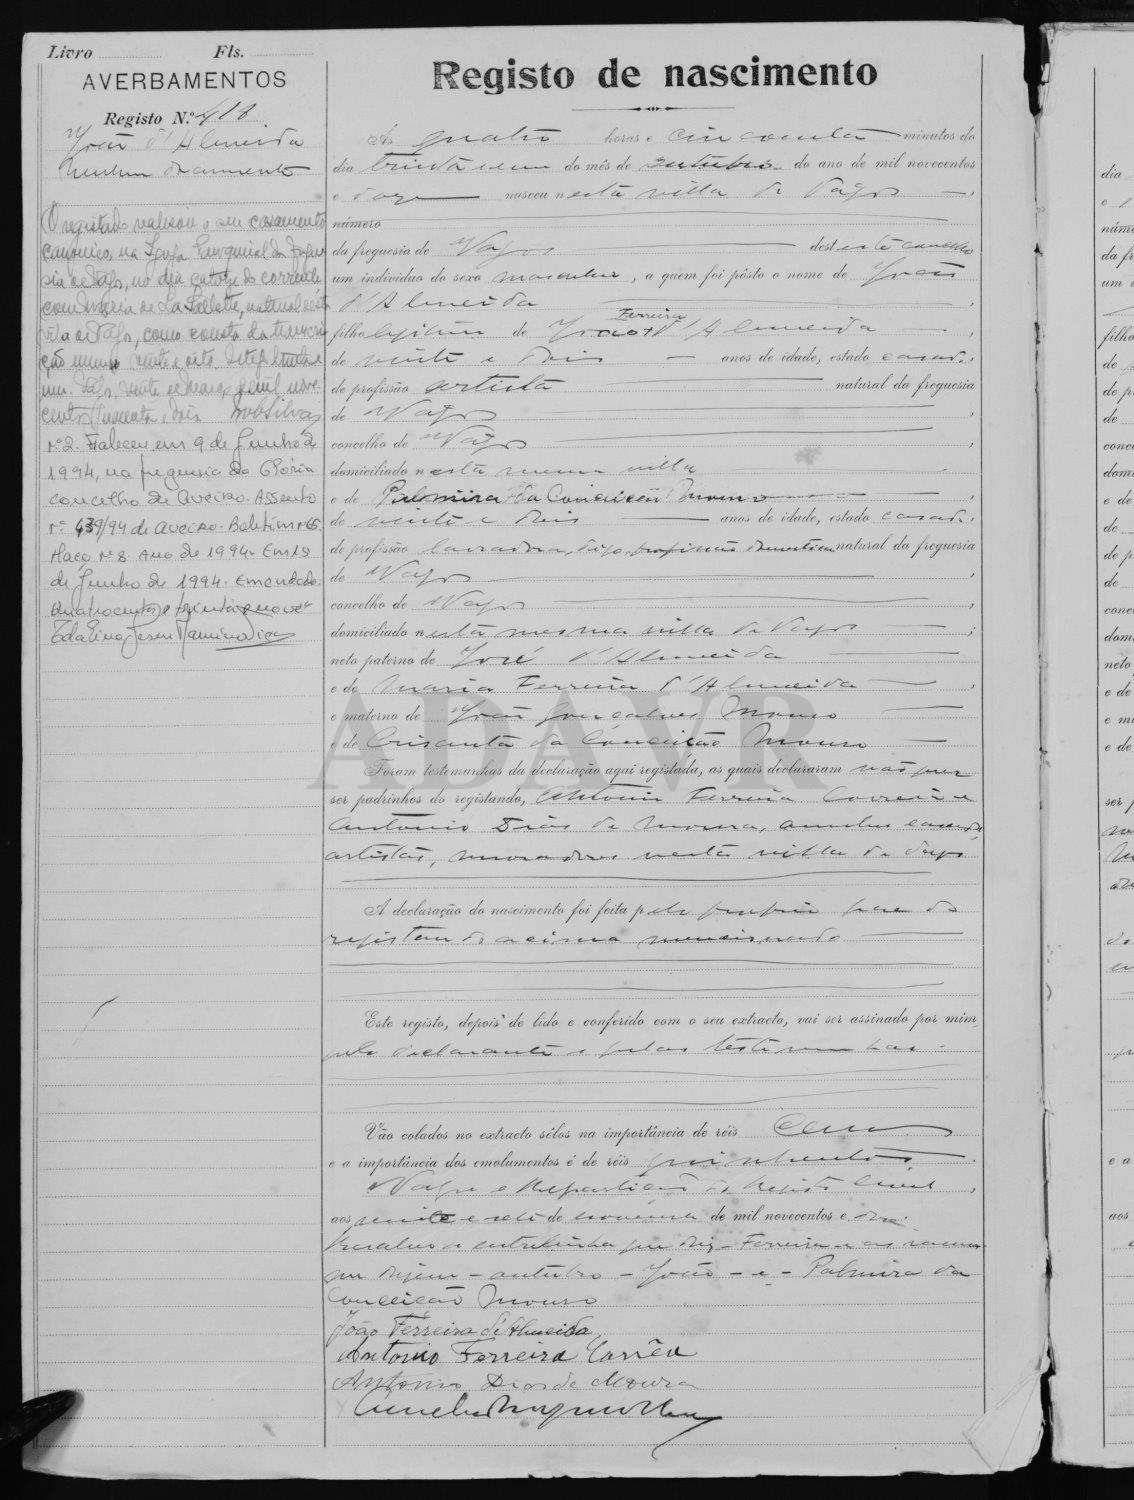 Livro Fls.
AVERBAMENTOS
Registo N.º 418
João d'Almeida
Nenhum documento
O registado realisou o seu casamento
canonico, na Igreja Paroquial da fregue
sia de Vagos, no dia catorze do corrente
com Maria de La Salette, natural desta
vila de Vagos, como consta da transcri
ção numero vinte e oito
um. Vagos, vinte de março de mil nove
centos quarenta e dois
Nº 2. Faleceu em 9 de Junho de
1994, na freguesia da Glória
concelho de Aveiro. Assento
nº 439/94 de Aveiro. Boletim nº 65
Maço nº 8. Ano de 1994. Em 18
de Junho de 1994. Emendado.
quatrocentos e trinta e nove
Registo de nascimento
Ás quatro horas e cincoenta minutos do
dia trinta e um do mês de outubro do ano de mil novecentos
e doze nasceu nesta villa de Vagos
número
da freguesia de Vagos deste concelho
um individuo do sexo masculino, a quem foi pôsto o nome de João
d'Almeida
Ferreira
filho legitimo de João d'Almeida
de vinte e dois anos de idade, estado casado,
de profissão artista natural da freguesia
de Vagos
concelho de Vagos
domiciliado nesta mesma villa
e de Palmira da Conceição Mouro
de vinte e dois anos de idade, estado casada,
de profissão lavradora, digo, profissão domestica natural da freguesia
de Vagos
concelho de Vagos
domiciliado nesta mesma villa de Vagos ;
neto paterno de José d'Almeida
e de Maria Ferreira d'Almeida
e materno de João Gonçalves Mouro
e de Crisanta da Conceição Mouro
Foram testemunhas da declaração aqui registada, as quais declararam não querer
ser padrinhos do registando, Antonio Ferreira Correia e
Antonio Dias de Moura, ambos casados,
artistas, moradores nesta villa de Vagos
A declaração do nascimento foi feita pelo proprio pae do
registando acima mencionado
Este registo, depois de lido e conferido com o seu extracto, vai ser assinado por mim,
pelo declarante e pelas testemunhas.
Vão colados no extracto sêlos na importância de réis Cem
e a importância dos emolumentos é de réis quinhentos.
Vagos e Repartição do Registo Civil,
aos vinte e sete de novembro de mil novecentos e doze.
Resalvo a entrelinha que diz - Ferreira - e as rasuras
que dizem - outubro - João - e - Palmira da
Conceição Mouro
João Ferreira d'Almeida
Antonio Ferreira Corrêa
Antonio Dias de Moura
ADAVR
dia
e
núme
da fr
um i
filho
de
de p
de
conce
domi
e de
de
de p
de
conc
dom
neto
e de
e m
e de
ser p
e a
aos